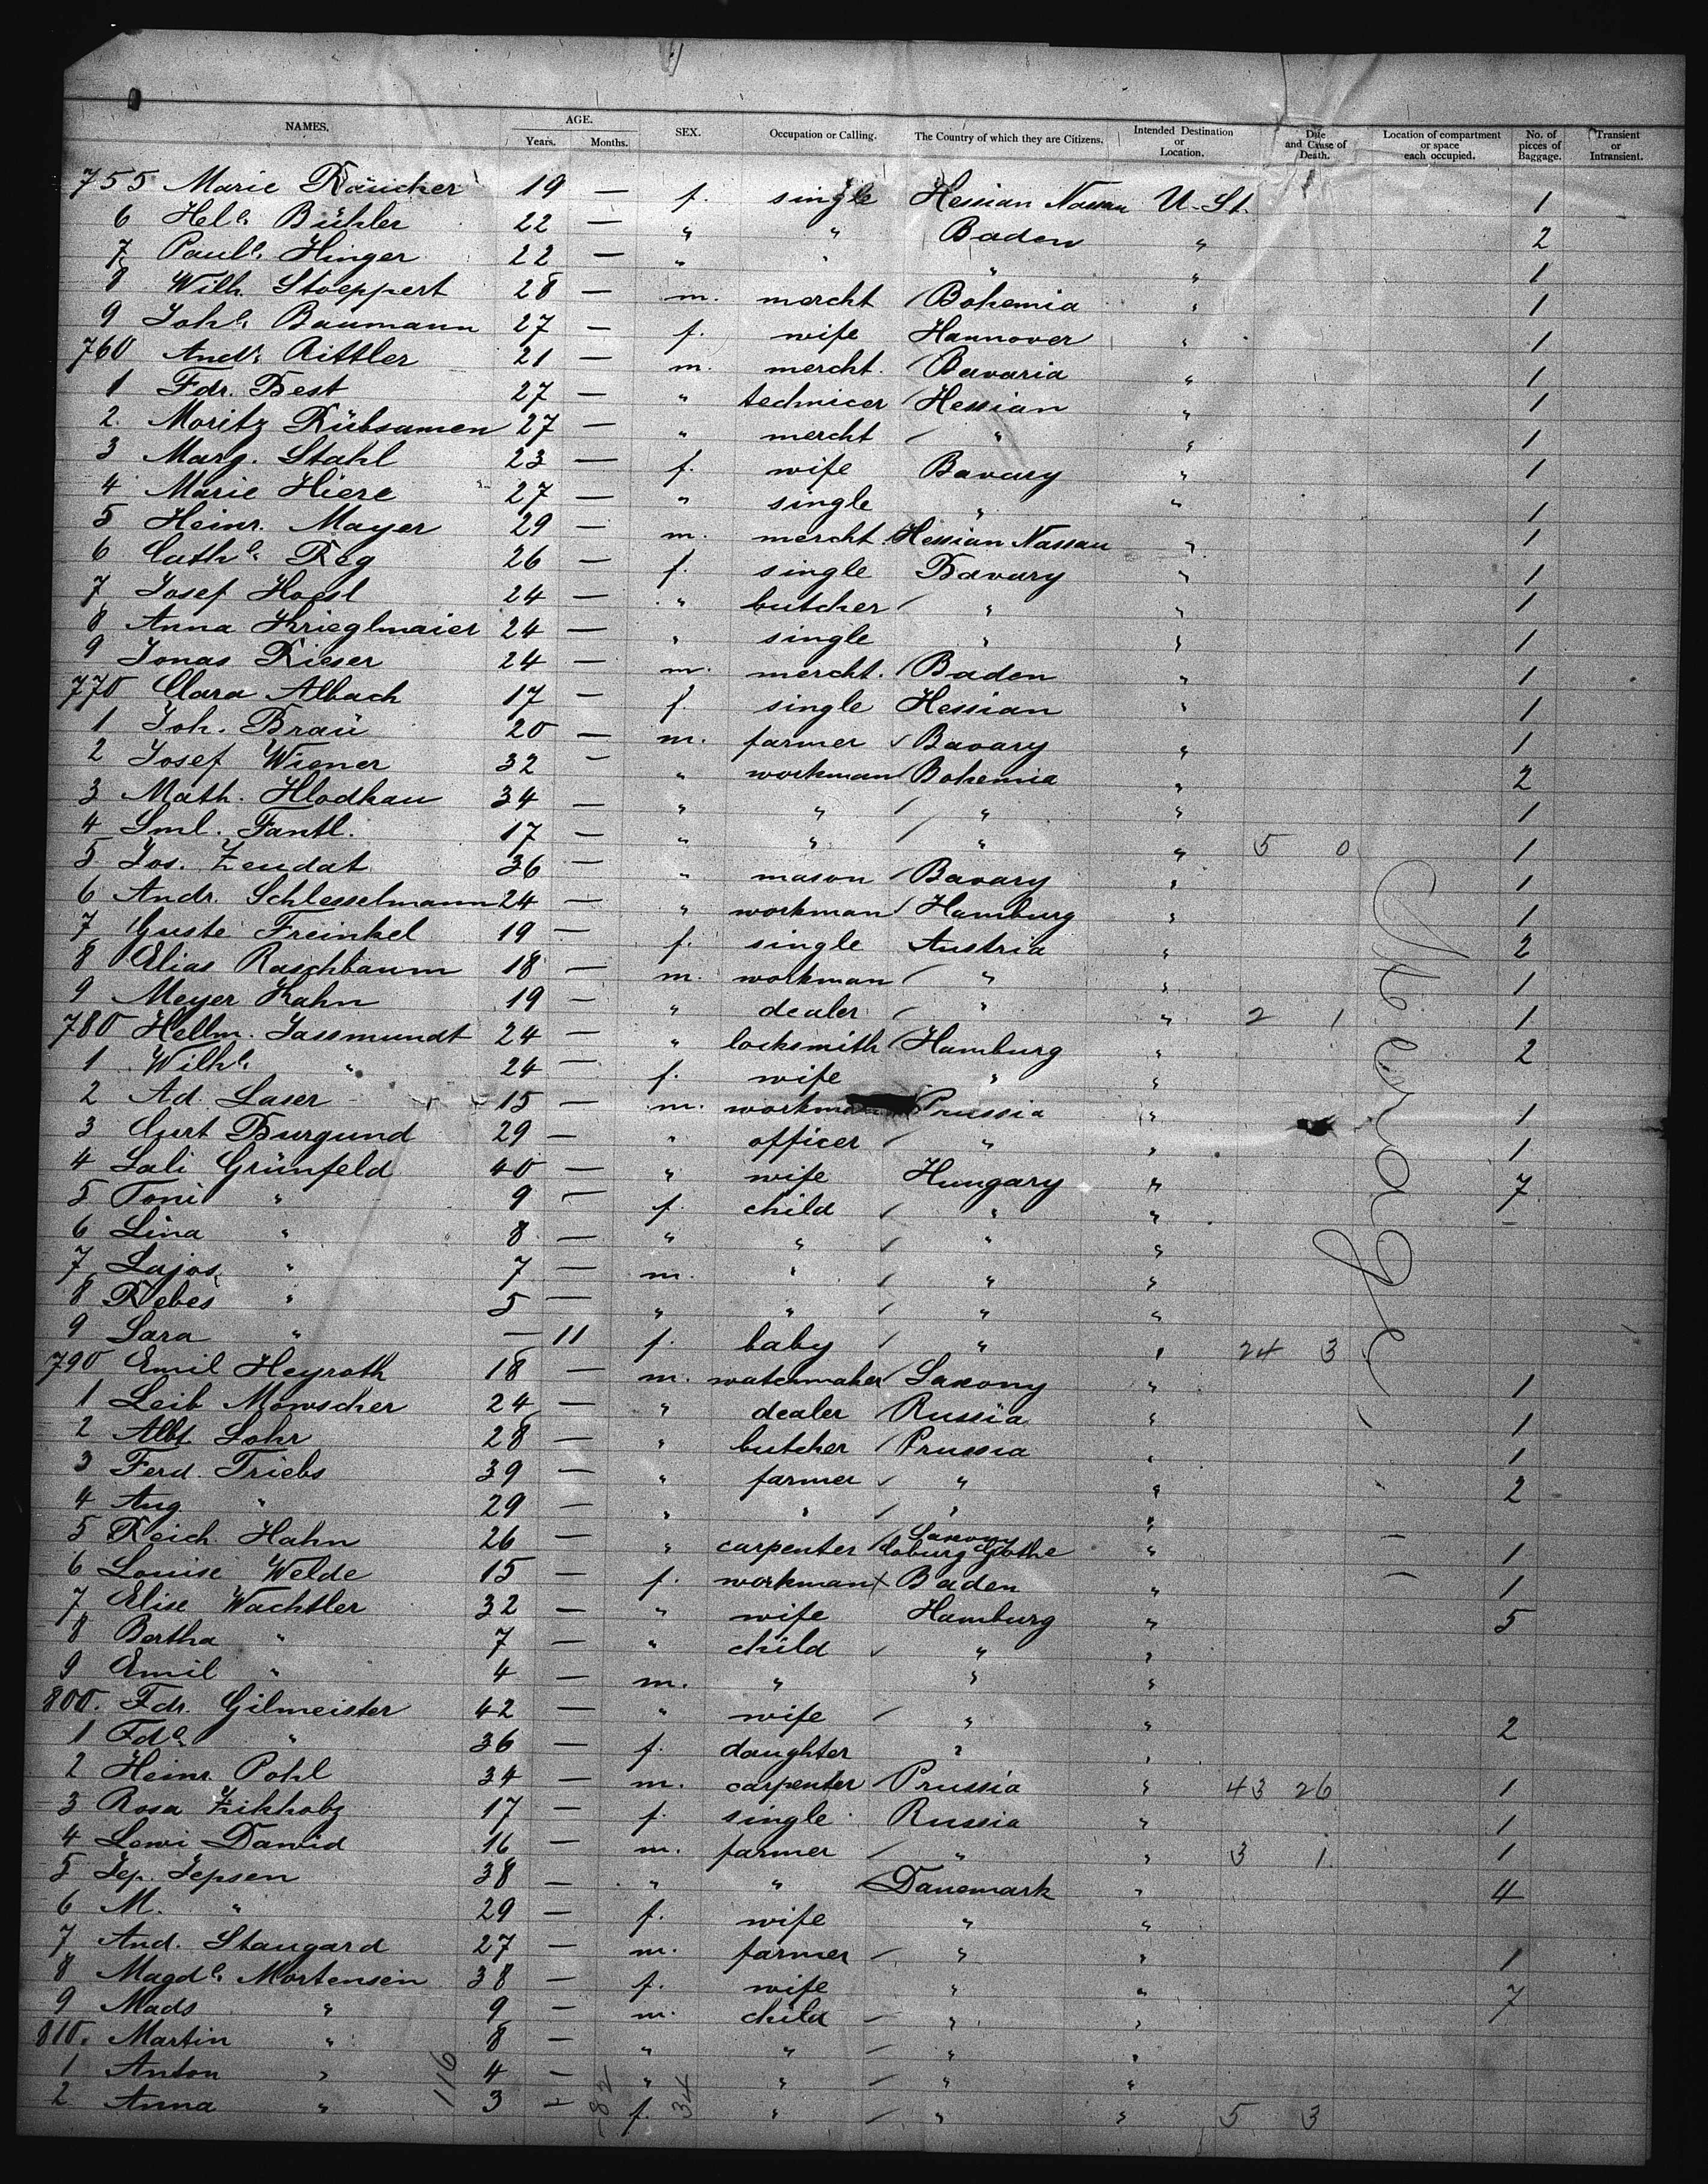 NAMES. AGE. Years. Months. SEX. Occupation or Calling. The Country of which they are Citizens. Intended Destination or Location. Date and Cause of Death. Location of compartment or space each occupied. No. of pieces of Baggage. Transient or Intransient.
755 Marie Räucker 19 — f. single Hessian Nassau U. St. 1
6 Hele. Bühler 22 — " " Baden " 2
7 Paule. Hinger 22 — " " " " 1
8 Wilh. Stoeppert 28 — m. mercht / Bohemia " 1
9 Johe. Baumann 27 — f. wife Hannover " 1
760 Andr. Rittler 21 — m. mercht. / Bavaria " 1
1 Fdr. Best 27 — " technicer / Hessian " 1
2. Moritz Rübsamen 27 — " mercht / " " 1
3 Marg. Stahl 23 — f. wife Bavary " 1
4 Marie Hiere 27 — " single " " 1
5 Heinr. Mayer 29 — m. mercht. Hessian Nassau " 1
6 Cathe. Reg 26 — f. single Bavary " 1
7 Josef Hoesl 24 — " butcher / " " 1
8 Anna Krieglmaier 24 — " single " " 1
9 Jonas Rieser 24 — m. mercht. / Baden " 1
770 Clara Albach 17 — f. single Hessian " 1
1 Joh. Braü 20 — m. farmer ✓ Bavary " 1
2 Josef Wiener 32 — " workman / Bohemia " 2
3 Math. Hlodkau 34 — " " / " " 1
4 Sml. Fantl. 17 — " " / " " 5 0 1
5 Jos. Zeudat 36 — " mason / Bavary " 1
6 Andr. Schlesselmann 24 — " workman / Hamburg " 1
7 Guste Freinkel 19 — f. single Austria " 2
8 Elias Raschbaum 18 — m. workman / " " 1
9 Meyer Kahn 19 — " dealer / " " 2 1 1
780 Hellm. Jassmundt 24 — " locksmith / Hamburg " 2
1 Wilhe. " 24 — f. wife " "
2 Ad. Laser 15 — m. workman Prussia " 1
3 Curt Burgund 29 — " officer / " " 1
4 Sali Grünfeld 40 — " wife Hungary " 7
5 Toni " 9 — f. child ✓ " "
6 Lina " 8 — " " ✓ " "
7 Lajos " 7 — m. " ✓ " "
8 Rebes " 5 — " " ✓ " "
9 Sara " — 11 f. baby / " " 24 3
790 Emil Heyroth 18 — m. watchmaker / Saxony " 1
1 Leib Mowscher 24 — " dealer / Russia " 1
2 Albt Lohr 28 — " butcher / Prussia " 1
3 Ferd. Triebs 39 — " farmer ✓ " " 2
4 Aug " 29 — " " / " "
5 Reich. Hahn 26 — " carpenter / Saxony Coburg Gothe " 1
6 Louise Welde 15 — f. workman x Baden " 1
7 Elise Wachtler 32 — " wife Hamburg " 5
8 Bertha " 7 — " child ✓ " "
9 Emil " 4 — m. " " "
800. Fdr. Gilmeister 42 — " wife / " " 2
1 Fde. " 36 — f. daughter " "
2 Heinr. Pohl 34 — m. carpenter / Prussia " 43 26 1
3 Rosa Zikholz 17 — f. single Russia " 1
4 Lewi Dawid 16 — m. farmer / " " 3 1. 1
5 Jep. Jepsen 38 — " " / Danemark " 4
6 M. " 29 — f. wife " "
7 And. Staugard 27 — m. farmer / " " 1
8 Magde. Mortensen 38 — f. wife " " 7
9 Mads " 9 — m. child / " "
810. Martin " 8 — " " / " "
1 Anton " 4 — " " / " "
2 Anna " 3 — f. " / " " 5 3
Steerage
116 82 34